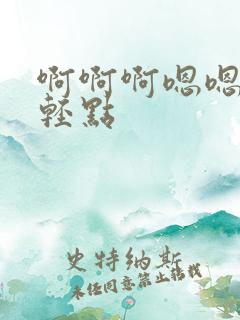 啊啊啊嗯嗯
轻點
史特纳斯
未经同意禁止转载